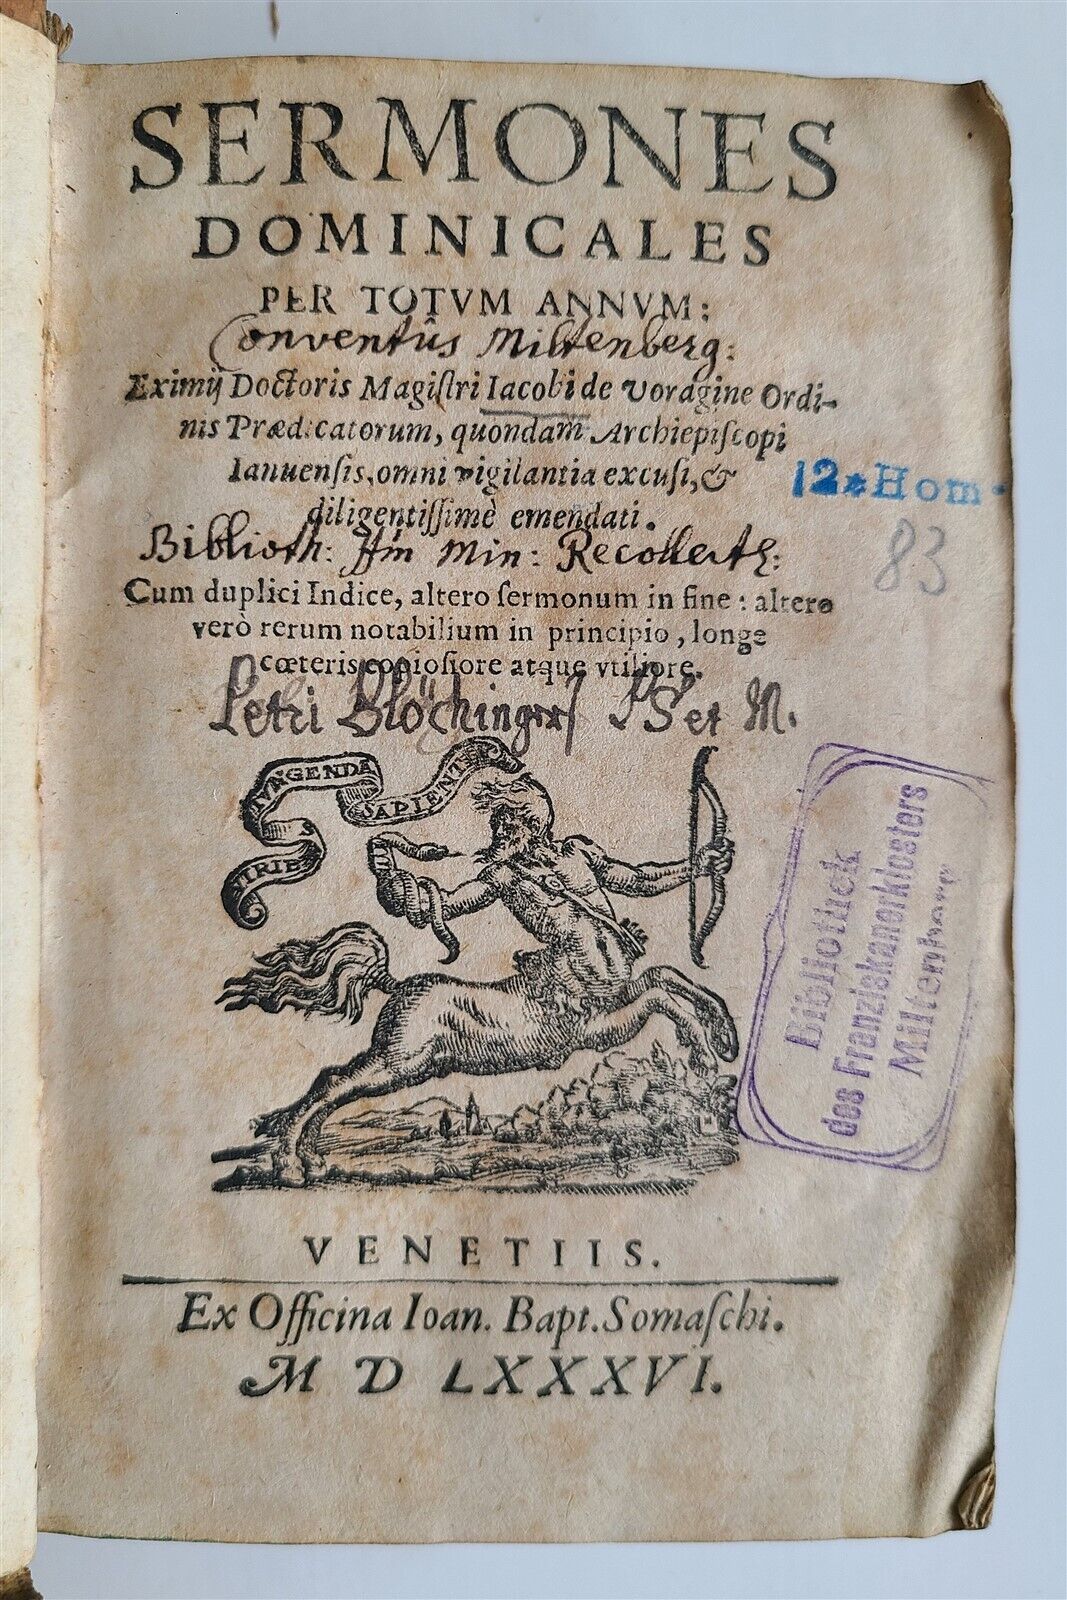 SERMONES
DOMINICALES
PER TOTVM ANNVM:
Conventûs Miltenberg:
Eximij Doctoris Magiſtri Iacobi de Voragine Ordi-
nis Prædicatorum, quondam Archiepiſcopi
Ianuenſis, omni vigilantia excuſi, &
diligentiſſimè emendati.
12*Hom.
83
Biblioth: Min: Recollect:
Cum duplici Indice, altero ſermonum in fine: altero
verò rerum notabilium in principio, longe
cœteris copioſiore atque vtiliore.
Petri Blöchinger et M.
VIRIB IVGENDA SAPIENTI
Bibliothek
des Franziskanerklosters
Miltenberg
VENETIIS.
Ex Officina Ioan. Bapt. Somaſchi.
M D LXXXVI.